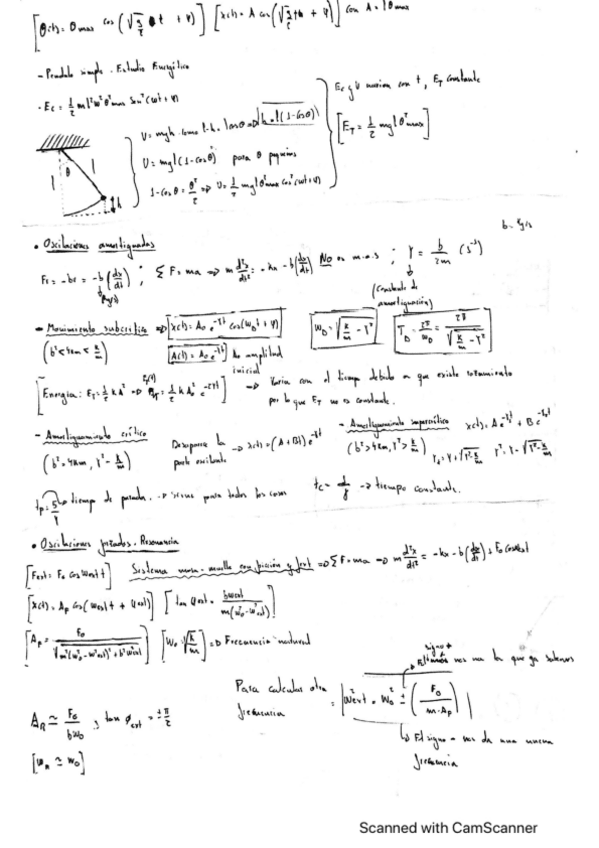 [θ(t) = θmax cos(√(g/l) t + φ)] [x(t) = A cos(√(g/l) t + φ)] con A = lθmax
- Pendulo simple. Estudio Energético
· Ec = 1/2 ml²ω²θ²max sen²(ωt+φ)
U = mgh como l-h = l cosθ => h = l(1-cosθ)
U = mgl(1-cosθ) para θ pequeños
1-cosθ = θ²/2 => U = 1/2 mglθ²max cos²(ωt+φ)
Ec y U varian con t, ET constante
[ET = 1/2 mglθ²max]
θ
l
l
h
b = kg/s
· Oscilaciones amortiguadas
Fr = -bv = -b(dx/dt) ; ΣF = ma => m d²x/dt² = -kx - b(dx/dt) No es m.a.s ; γ = b/2m (s⁻¹)
(kg/s)
(Constante de amortiguación)
- Movimiento subcrítico => x(t) = A₀e^-γt cos(ωDt + φ)
ωD = √(k/m - γ²)
TD = 2π/ωD = 2π/√(k/m - γ²)
A(t) = A₀e^-γt A₀ amplitud inicial
[Energia: ET = 1/2 kA² => ET = 1/2 kA₀² e^-2γt => Varia con el tiempo debido a que existe rozamiento
por lo que ET no es constante.
- Amortiguamiento crítico
(b² = 4km, γ² = k/m)
Desaparece la parte oscilante -> x(t) = (A + Bt)e^-γt
- Amortiguamiento supercrítico
(b² > 4km, γ² > k/m)
tp = 5/γ -> tiempo de parada. -> para todos los casos
tc = 1/γ -> tiempo constante.
· Oscilaciones forzadas. Resonancia
[Fext = F₀ cos ωext t] Sistema masa-muelle con fricción y fext => ΣF = ma => m d²x/dt² = -kx - b(dx/dt) + F₀ cos ωext t
[x(t) = Ap cos(ωext t + φext)] [tan φext = bωext/m(ω₀² - ω²ext)]
[Ap = F₀/√(m²(ω₀² - ω²ext)² + b²ω²ext)] [ω₀ = √(k/m)] => Frecuencia natural
Para calcular otra frecuencia = |ω²ext = ω₀² ± (F₀/m·Ap)|
signo +
nos da la que ya sabemos
El signo - nos da una nueva frecuencia
AR ≃ F₀/bω₀ ; tan φext = ± π/2
[ωR ≃ ω₀]
Scanned with CamScanner